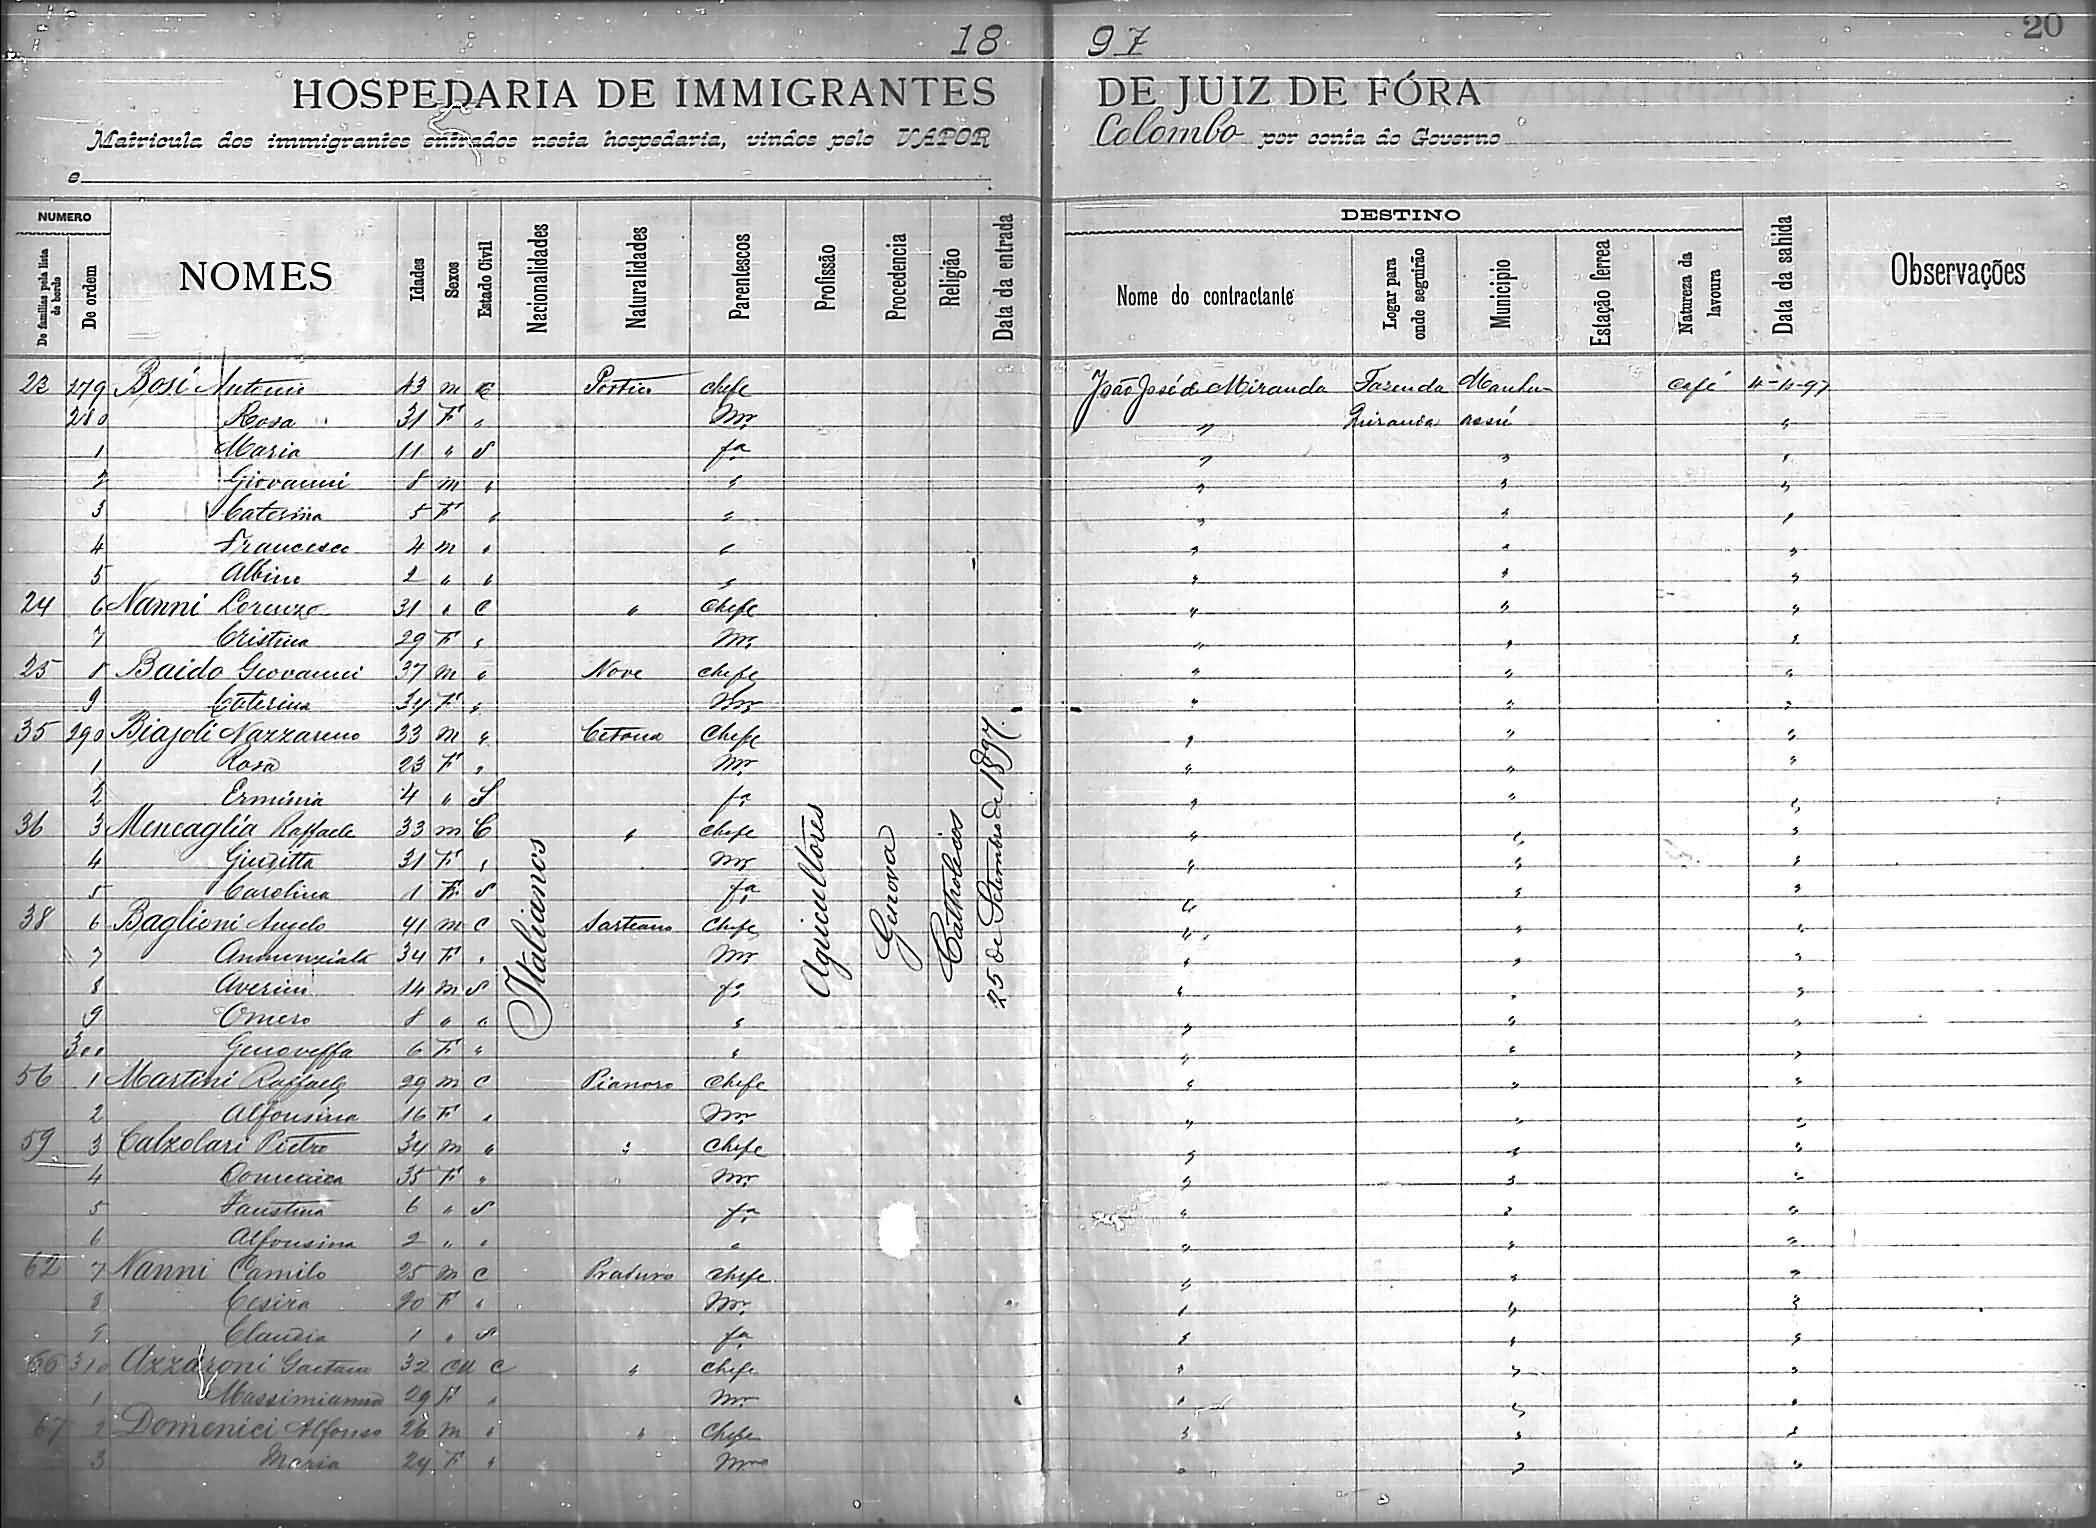 20
18 97
HOSPEDARIA DE IMMIGRANTES DE JUIZ DE FÓRA
Matricula dos immigrantes entrados nesta hospedaria, vindos pelo VAPOR Colombo por conta do Governo
e
NUMERO
De familias pela lista de bordo
De ordem
NOMES
Idades
Sexos
Estado Civil
Nacionalidades
Naturalidades
Parentescos
Profissão
Procedencia
Religião
Data da entrada
DESTINO
Nome do contractante
Logar para onde seguirão
Municipio
Estação ferrea
Natureza da lavoura
Data da sahida
Observações
23 279 Bosi Antonio 43 m C Portico chefe João José de Miranda Fazenda Manhu- Café 4-4-97
280 Rosa 31 F " mr. " Miranda assú "
1 Maria 11 " S fa " " "
2 Giovanni 8 m " " " " "
3 Caterina 5 F " " " " "
4 Francesco 4 m " " " " "
5 Albino 2 " " " " " "
24 6 Nanni Lorenzo 31 " C " Chefe " " "
7 Cristina 29 F " mr. " " "
25 8 Baido Giovanni 37 m " Nove chefe " " "
9 Caterina 34 F " mr " " "
35 290 Biagoli Nazzareno 33 m " Cetona Chefe " " "
1 Rosa 23 F " mr " " "
2 Erminia 4 " S fa " " "
36 3 Mencaglia Raffaele 33 m C " chefe " " "
4 Giuditta 31 F " mr " " "
5 Carolina 1 F S fa " " "
38 6 Baglioni Angelo 41 m C Sarteano Chefe " " "
7 Annunziata 34 F " mr " " "
8 Averini 14 m S fo " " "
9 Omero 8 " " " " " "
300 Genoveffa 6 F " " " " "
56 1 Martini Raffaele 29 m C Pianoro Chefe " " "
2 Alfonsina 16 F " mr " " "
59 3 Calzolari Pietro 34 m " " Chefe " " "
4 Domenica 35 F " mr. " " "
5 Faustina 6 " S fa " " "
6 Alfonsina 2 " " " " " "
62 7 Nanni Camilo 25 m C Praduro chefe " " "
8 Cesira 20 F " mr " " "
9 Claudia 1 " S fa " " "
66 310 Azzaroni Gaetano 32 M C " chefe " " "
1 Massimiama 29 F " mr " " "
67 2 Domenici Alfonso 26 m " " Chefe " " "
3 Maria 24 F " mr " " "
Italianos
Agricultores
Genova
Catholicos
25 de Setembro de 1897.